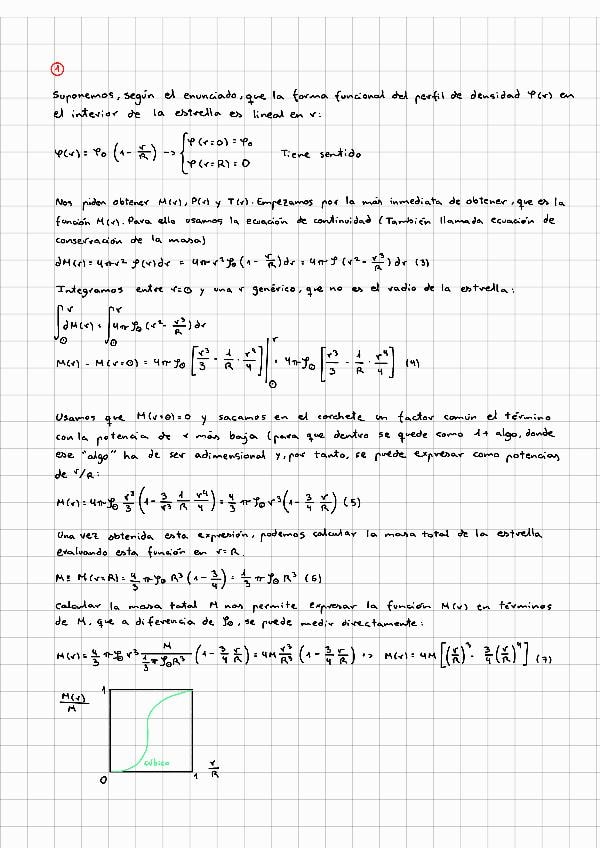 1
Suponemos, según el enunciado, que la forma funcional del perfil de densidad φ(r) en
el interior de la estrella es lineal en r:
φ(r) = φ₀ (1 - r/R) -> { φ(r=0) = φ₀
φ(r=R) = 0
Tiene sentido
Nos piden obtener M(r), P(r) y T(r). Empezamos por la más inmediata de obtener, que es la
función M(r). Para ello usamos la ecuación de continuidad (También llamada ecuación de
conservación de la masa)
∂M(r) = 4πr² ρ(r)dr = 4πr² ρ₀(1 - r/R)dr = 4πρ (r² - r³/R) dr (3)
Integramos entre r=0 y una r genérico, que no es el radio de la estrella:
∫₀ʳ ∂M(r) = ∫₀ʳ 4πρ₀ (r² - r³/R) dr
M(r) - M(r=0) = 4πρ₀ [r³/3 - 1/R · r⁴/4]|₀ʳ = 4πρ₀ [r³/3 - 1/R · r⁴/4] (4)
Usamos que M(r=0)=0 y sacamos en el corchete un factor común el término
con la potencia de r más baja (para que dentro se quede como 1+ algo, donde
ese "algo" ha de ser adimensional y, por tanto, se puede expresar como potencias
de r/R:
M(r) = 4πρ₀ r³/3 (1 - 3/r³ 1/R r⁴/4) = 4/3 πρ₀r³(1 - 3/4 r/R) (5)
Una vez obtenida esta expresión, podemos calcular la masa total de la estrella
evaluando esta función en r=R.
M ≡ M(r=R) = 4/3 πρ₀ R³ (1 - 3/4) = 1/3 π ρ₀ R³ (6)
Calcular la masa total M nos permite expresar la función M(r) en términos
de M, que a diferencia de ρ₀, se puede medir directamente:
M(r) = 4/3 πρ₀ r³ M/(1/3 πρ₀R³) (1 - 3/4 r/R) = 4M r³/R³ (1 - 3/4 r/R) => M(r) = 4M [(r/R)³ - 3/4 (r/R)⁴] (7)
M(r)/M
1
cúbico
0
1
r/R